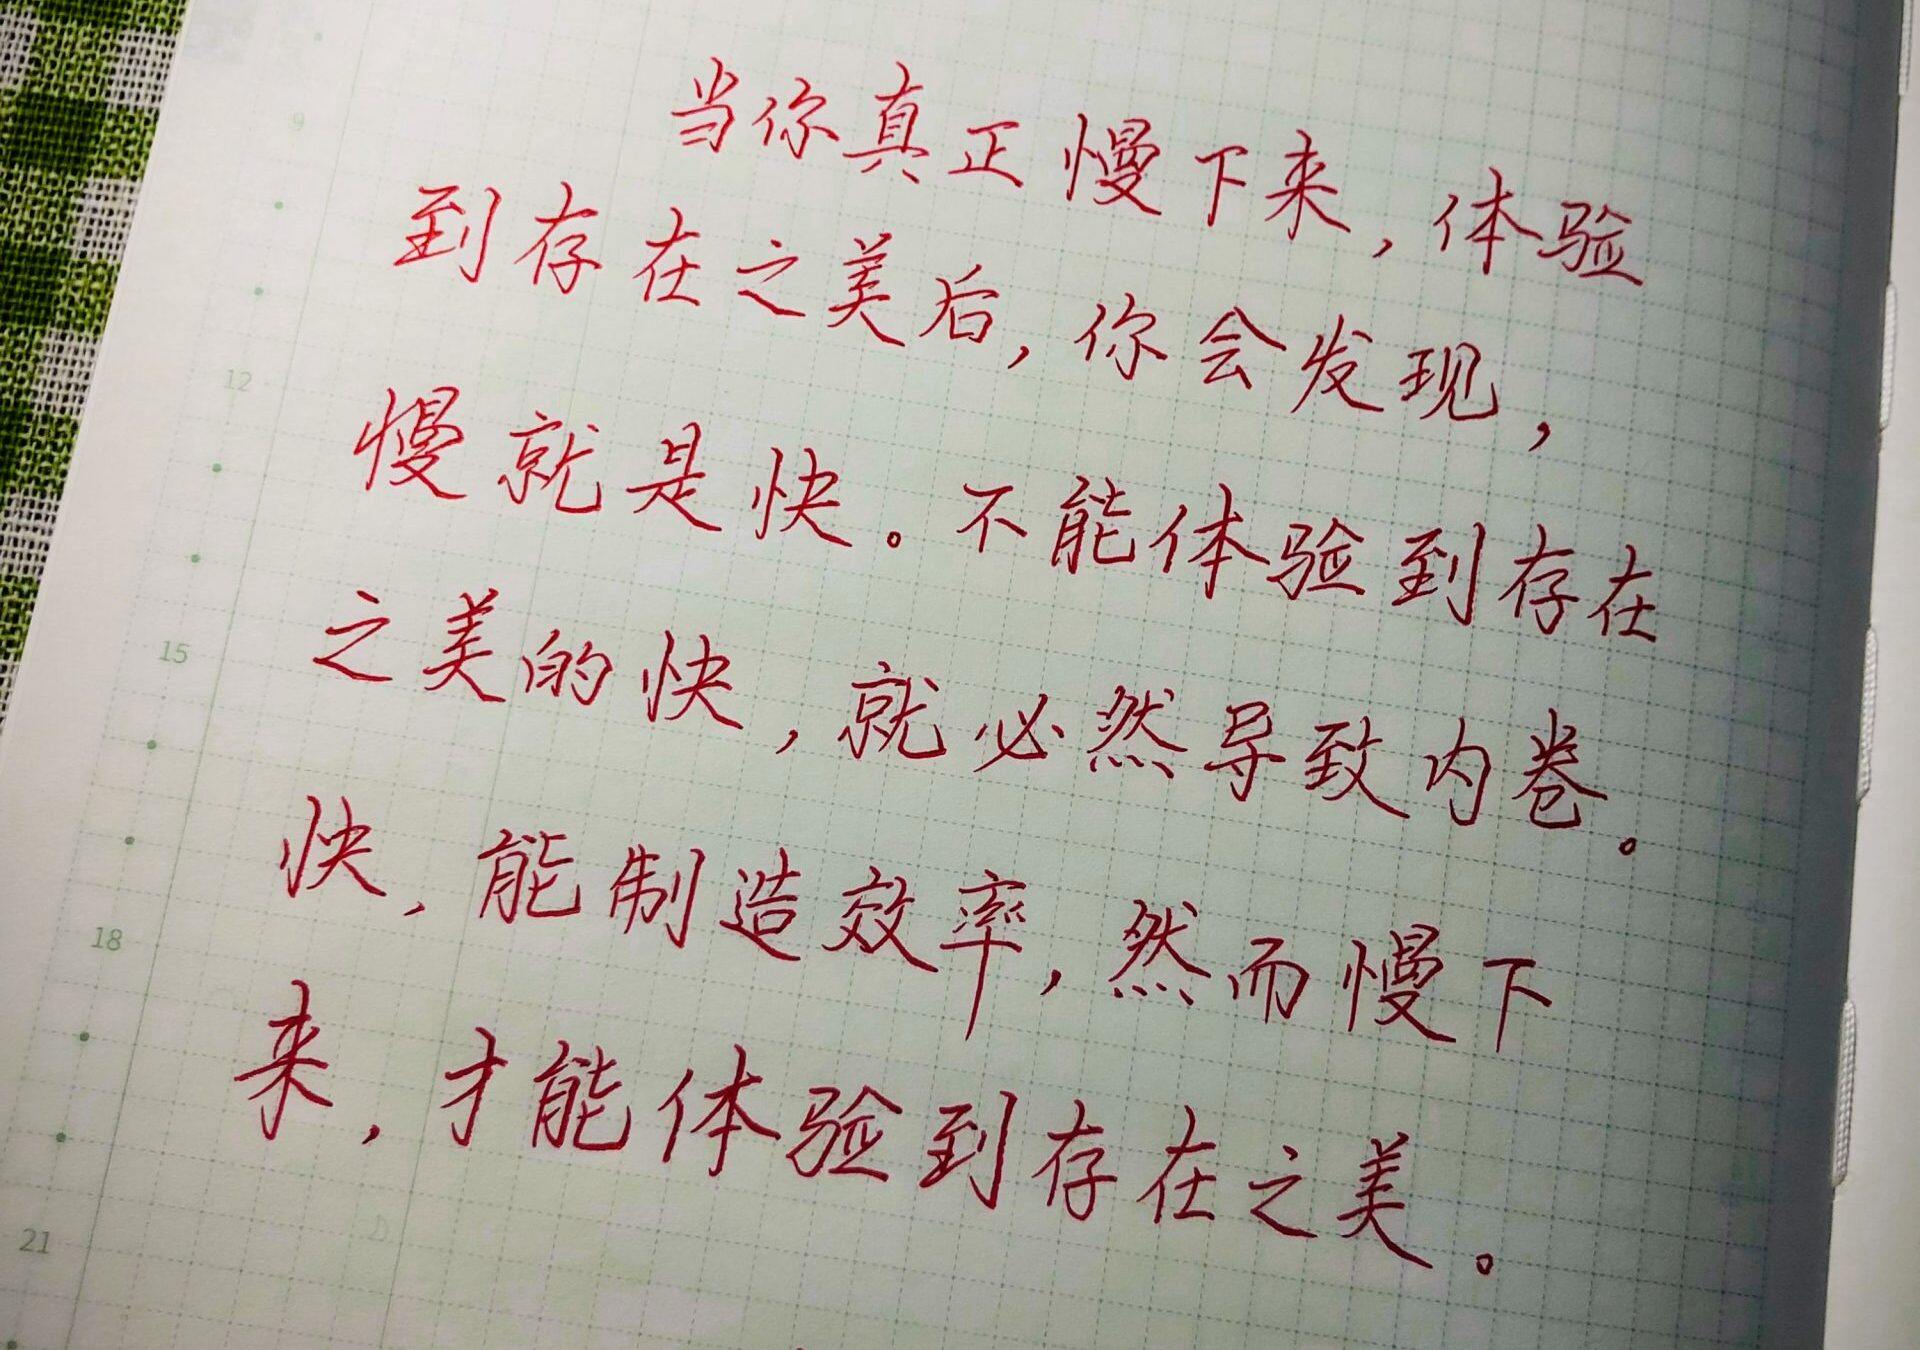 9
当你真正慢下来，体验
到存在之美后，你会发现，
12
慢就是快。不能体验到存在
之美的快，就必然导致内卷。
15
快，能制造效率，然而慢下
18
来，才能体验到存在之美。
21